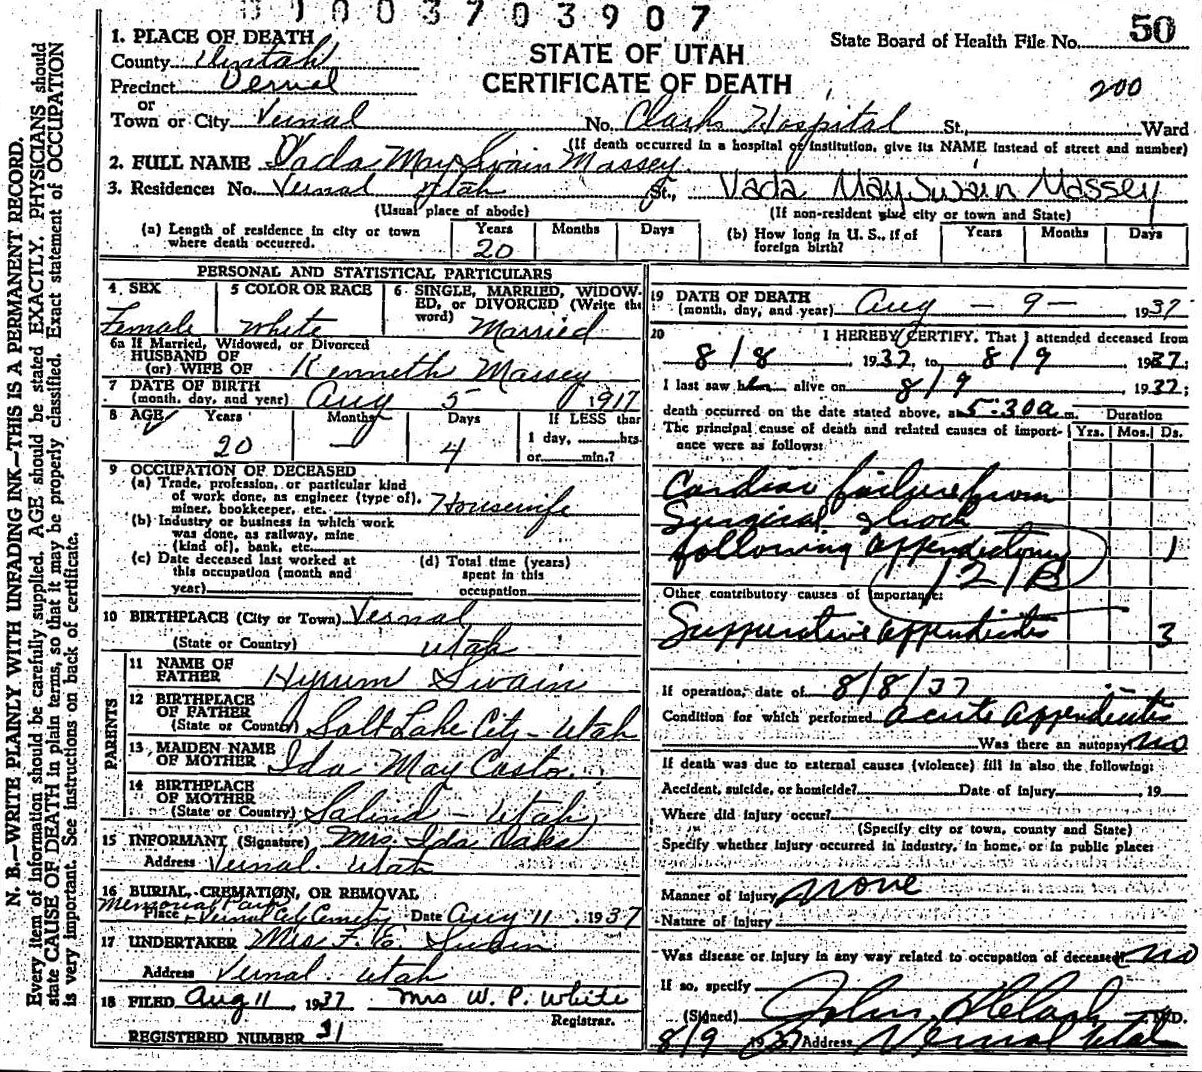 003703907
50
STATE OF UTAH
CERTIFICATE OF DEATH
State Board of Health File No.
200
1. PLACE OF DEATH
County Uintah
Precinct Vernal
or
Town or City Vernal No. Clarks Hospital St., Ward
(If death occurred in a hospital or institution, give its NAME instead of street and number)
2. FULL NAME Vada May Swain Massey
3. Residence: No. Vernal Utah St., Vada May Swain Massey
(Usual place of abode) (If non-resident give city or town and State)
(a) Length of residence in city or town where death occurred. Years 20 Months Days
(b) How long in U. S., if of foreign birth? Years Months Days
PERSONAL AND STATISTICAL PARTICULARS
4 SEX Female
5 COLOR OR RACE White
6 SINGLE, MARRIED, WIDOWED, or DIVORCED (Write the word) Married
6a If Married, Widowed, or Divorced
HUSBAND OF
(or) WIFE OF Kenneth Massey
7 DATE OF BIRTH
(month, day, and year) Aug 5 1917
8 AGE Years 20 Months — Days 4 If LESS than 1 day, hrs. or min.?
9 OCCUPATION OF DECEASED
(a) Trade, profession, or particular kind
of work done, as engineer (type of),
miner, bookkeeper, etc. Housewife
(b) Industry or business in which work
was done, as railway, mine
(kind of), bank, etc.
(c) Date deceased last worked at
this occupation (month and
year)
(d) Total time (years)
spent in this
occupation
10 BIRTHPLACE (City or Town) Vernal
(State or Country) Utah
PARENTS
11 NAME OF FATHER Hyrum Swain
12 BIRTHPLACE OF FATHER
(State or Country) Salt Lake City - Utah
13 MAIDEN NAME OF MOTHER Ida May Casto
14 BIRTHPLACE OF MOTHER
(State or Country) Salina - Utah
15 INFORMANT (Signature) Mrs. Ida Oaks
Address Vernal Utah
16 BURIAL, CREMATION, OR REMOVAL
Memorial Park
Place Vernal City Cemetery Date Aug 11, 1937
17 UNDERTAKER Mrs F. E. Swain
Address Vernal Utah
18 FILED Aug 11, 1937 Mrs W. P. White
Registrar.
REGISTERED NUMBER 31
19 DATE OF DEATH
(month, day, and year) Aug - 9 - 1937
20 I HEREBY CERTIFY, That I attended deceased from
8/8 1937, to 8/9 1937;
I last saw h alive on 8/9 1937;
death occurred on the date stated above, at 5:30 a m. Duration
The principal cause of death and related causes of importance were as follows: Yrs. Mos. Ds.
Cardiac failure from
Surgical shock
following appendictomy 1
121B
Other contributory causes of importance:
Suppurative appendicitis 3
If operation, date of 8/8/37
Condition for which performed acute appendicitis
Was there an autopsy? no
If death was due to external causes (violence) fill in also the following:
Accident, suicide, or homicide? Date of injury 19
Where did injury occur?
(Specify city or town, county and State)
Specify whether injury occurred in industry, in home, or in public place:
Manner of Injury none
Nature of Injury
Was disease or injury in any way related to occupation of deceased? no
If so, specify
(Signed) John M. D.
8/9 1937 Address Vernal Utah
N. B.—WRITE PLAINLY WITH UNFADING INK—THIS IS A PERMANENT RECORD.
Every item of information should be carefully supplied. AGE should be stated EXACTLY. PHYSICIANS should
state CAUSE OF DEATH in plain terms, so that it may be properly classified. Exact statement of OCCUPATION
is very important. See instructions on back of certificate.